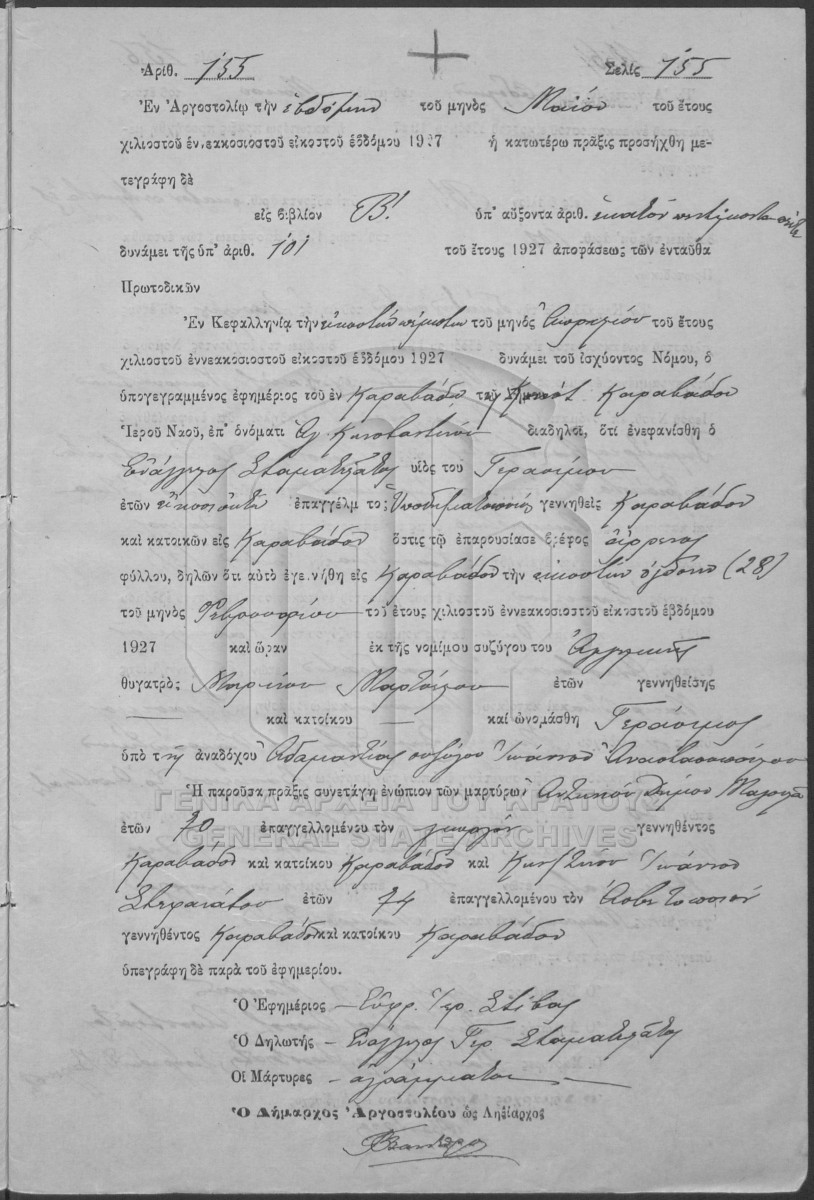 Ἀριθ. 155 Σελὶς 155
Ἐν Ἀργοστολίῳ τὴν ἑβδόμην τοῦ μηνὸς Μαΐου τοῦ ἔτους
χιλιοστοῦ ἐννεακοσιοστοῦ εἰκοστοῦ ἑβδόμου 1927 ἡ κατωτέρω πρᾶξις προσήχθη με-
τεγράφη δὲ
εἰς βιβλίον Β! ὑπ' αὔξοντα ἀριθ. ἑκατὸν πεντήκοντα πέντε
δυνάμει τῆς ὑπ' ἀριθ. 101 τοῦ ἔτους 1927 ἀποφάσεως τῶν ἐνταῦθα
Πρωτοδικῶν
Ἐν Κεφαλληνίᾳ τὴν εἰκοστὴν πέμπτην τοῦ μηνὸς Ἀπριλίου τοῦ ἔτους
χιλιοστοῦ ἐννεακοσιοστοῦ εἰκοστοῦ ἑβδόμου 1927 δυνάμει τοῦ ἰσχύοντος Νόμου, ὁ
ὑπογεγραμμένος ἐφημέριος τοῦ ἐν Καραβάδῳ τῆς Κοινότ. Καραβάδου
Ἱεροῦ Ναοῦ, ἐπ' ὀνόματι Ἁγ Κωνσταντίνου διαδηλοῖ, ὅτι ἐνεφανίσθη ὁ
Εὐάγγελος Σταματελάτος υἱὸς του Γερασίμου
ἐτῶν εἴκοσι ὀκτὼ ἐπαγγέλματος Ὑποδηματοποιός γεννηθεὶς Καραβάδου
καὶ κατοικῶν εἰς Καραβάδου ὅστις τῷ ἐπαρουσίασε βρέφος ἄῤῥενος
φύλλου, δηλῶν ὅτι αὐτὸ ἐγεννήθη εἰς Καραβάδου τὴν εἰκοστὴν ὀγδόην (28)
τοῦ μηνὸς Φεβρουαρίου τοῦ ἔτους χιλιοστοῦ ἐννεακοσιοστοῦ εἰκοστοῦ ἑβδόμου
1927 καὶ ὥραν ἐκ τῆς νομίμου συζύγου του Ἀγγελικῆς
θυγατρὸς Μαρίνου ἐτῶν γεννηθείσης
— καὶ κατοίκου — καὶ ὠνομάσθη Γεράσιμος
ὑπὸ τῆς ἀναδόχου Ἀδαμαντίας συζύγου Ἰωάννου Ἀναστασοπούλου
Ἡ παροῦσα πρᾶξις συνετάγη ἐνώπιον τῶν μαρτύρων Ἀντωνίου Δήμου
ΓΕΝΙΚΑ ΑΡΧΕΙΑ ΤΟΥ ΚΡΑΤΟΥΣ
GENERAL STATE ARCHIVES
ἐτῶν 70 ἐπαγγελλομένου τὸν γεωργὸν γεννηθέντος
Καραβάδου καὶ κατοίκου Καραβάδου καὶ Κωνστίνου Ἰωάννου
Στεφανάτου ἐτῶν 74 ἐπαγγελλομένου τὸν
γεννηθέντος Καραβάδου καὶ κατοίκου Καραβάδου
ὑπεγράφη δὲ παρὰ τοῦ ἐφημερίου.
Ὁ Ἐφημέριος – Εὐφρ. Ἱερ. Στίβας
Ὁ Δηλωτὴς – Εὐάγγελος Γερ. Σταματελάτος
Οἱ Μάρτυρες – ἀγράμματοι –
Ὁ Δήμαρχος Ἀργοστολίου ὡς Ληξίαρχος